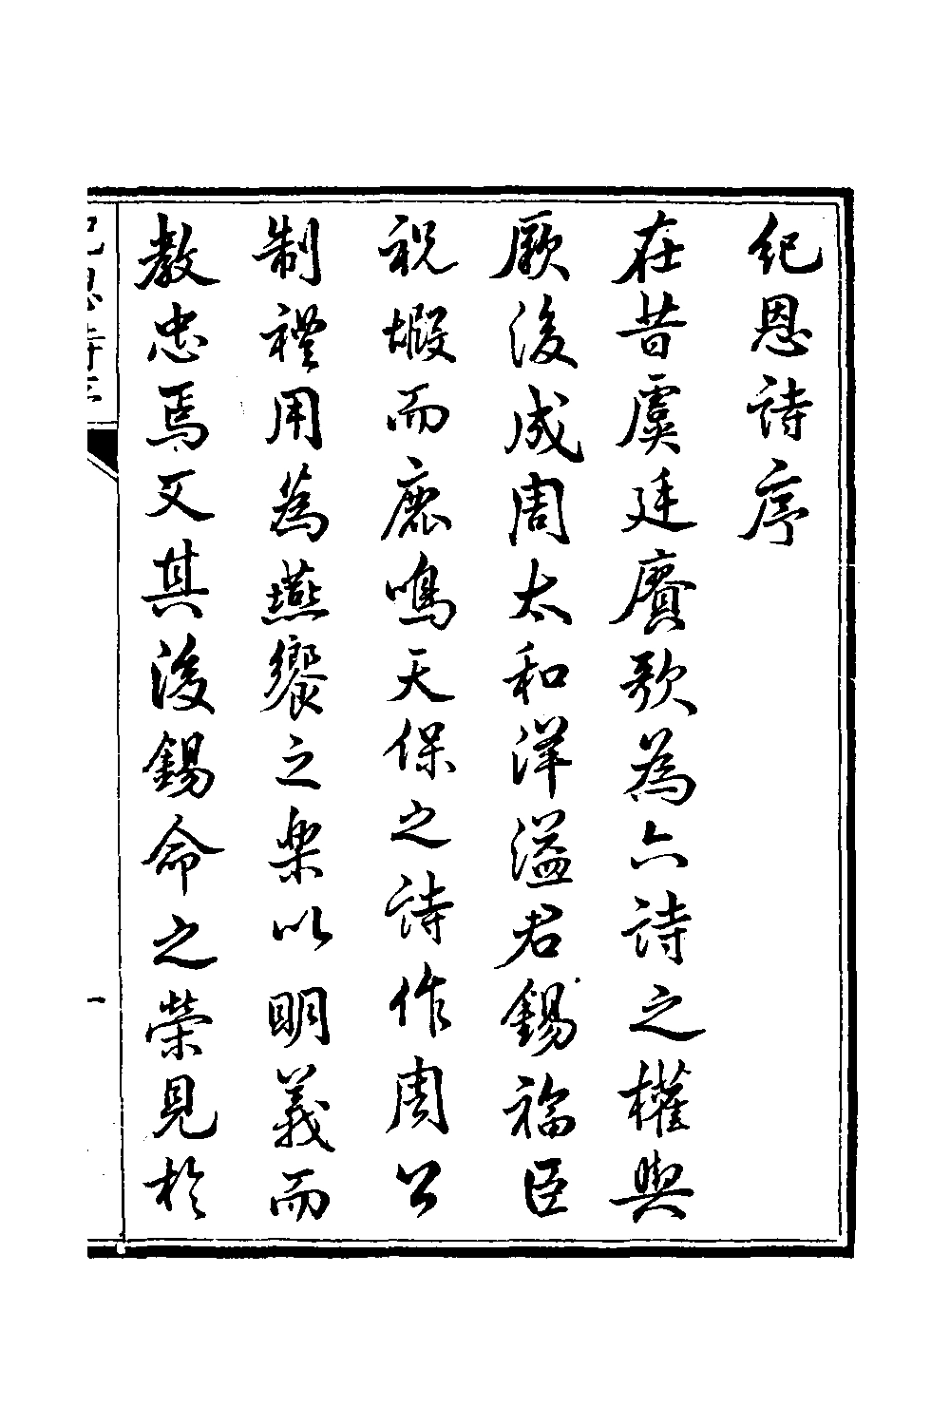 紀恩詩序
在昔虞廷賡歌為六詩之權輿
厥後成周太和洋溢君錫福臣
祝嘏而鹿鳴天保之詩作周公
制禮用為燕饗之樂以明義而
教忠焉又其後錫命之榮見於
紀恩詩序
一